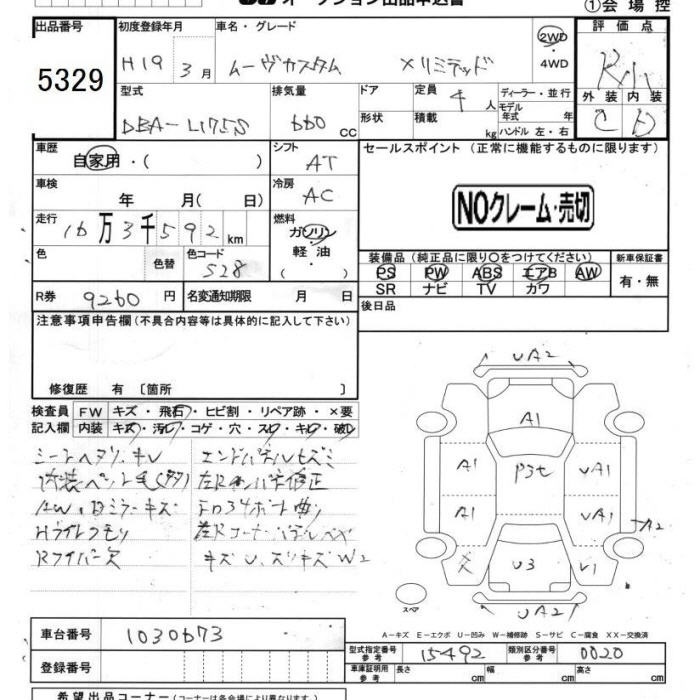 オークション出品申込書
①会場控
出品番号
5329
初度登録年月
H19 3月
車名・グレード
ムーヴカスタム Xリミテッド
2WD
・4WD
評価点
外装 内装
C D
型式
DBA-L175S
排気量
660 cc
ドア
形状
定員
4人
積載
kg
ディーラー・並行
モデル
年式 年
ハンドル 左・右
車歴
自家用・( )
シフト
AT
車検
年 月( 日)
冷房
AC
走行
16万3千592 km
燃料
ガソリン
軽油
・
色
色替
色コード
S28
R券
9260 円
名変通知期限 月 日
セールスポイント(正常に機能するものに限ります)
NOクレーム・売切
装備品(純正品に限り○をつけてください)
新車保証書
PS PW ABS エアB AW
SR ナビ TV カワ
有・無
後日品
注意事項申告欄(不具合内容等は具体的に記入して下さい)
修復歴 有〔箇所
検査員
記入欄
FW キズ・飛石・ヒビ割・リペア跡・×要
内装 キズ・汚レ・コゲ・穴・スレ・キレ・破レ
シートヘタリ、キレ
エンドパネルヒズミ
AW、
Hライトクモリ
Rワイパー欠
キズU、スリキズW2
UA2
A1
A1 P3t UA1
A1 UA1
A2
U3 V1
UA2
スペア
A-キズ E-エクボ U-凹み W-補修跡 S-サビ C-腐食 XX-交換済
車台番号
1030673
登録番号
型式指定番号
参考
15492
類別区分番号
参考
0020
車庫証明用
参考
長さ cm 幅 cm 高さ cm
希望出品コーナー(コーナーは各会場により異なります)